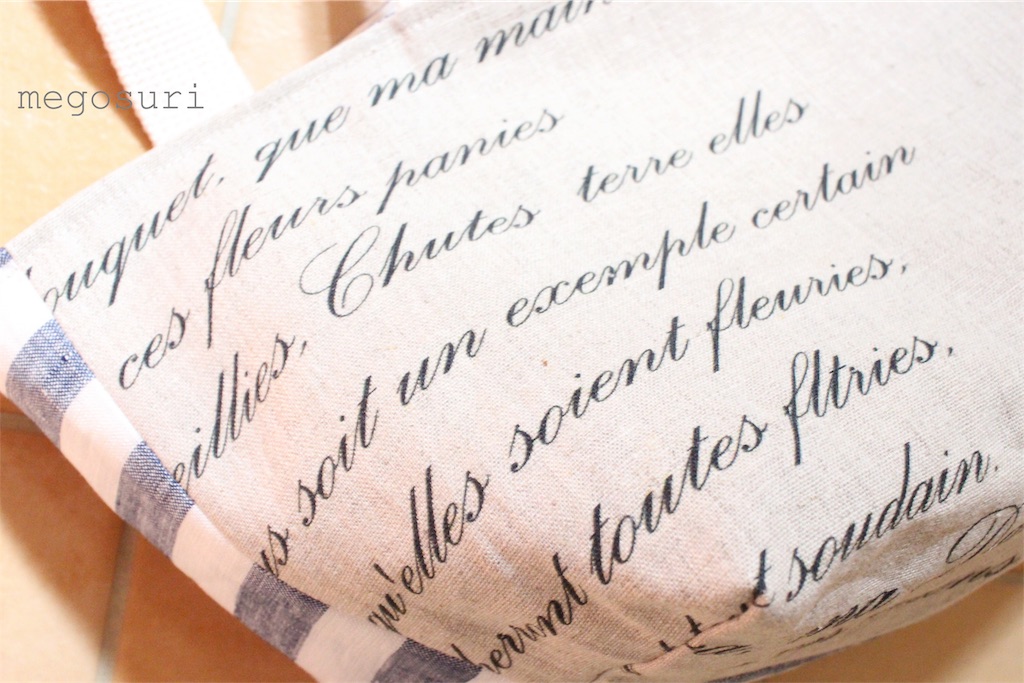 megosuri
ouquet, que ma main
ces fleurs panies
eillies, Chutes terre elles
us soit un exemple certain
qu'elles soient fleuries,
herunt toutes fltries,
soudain.